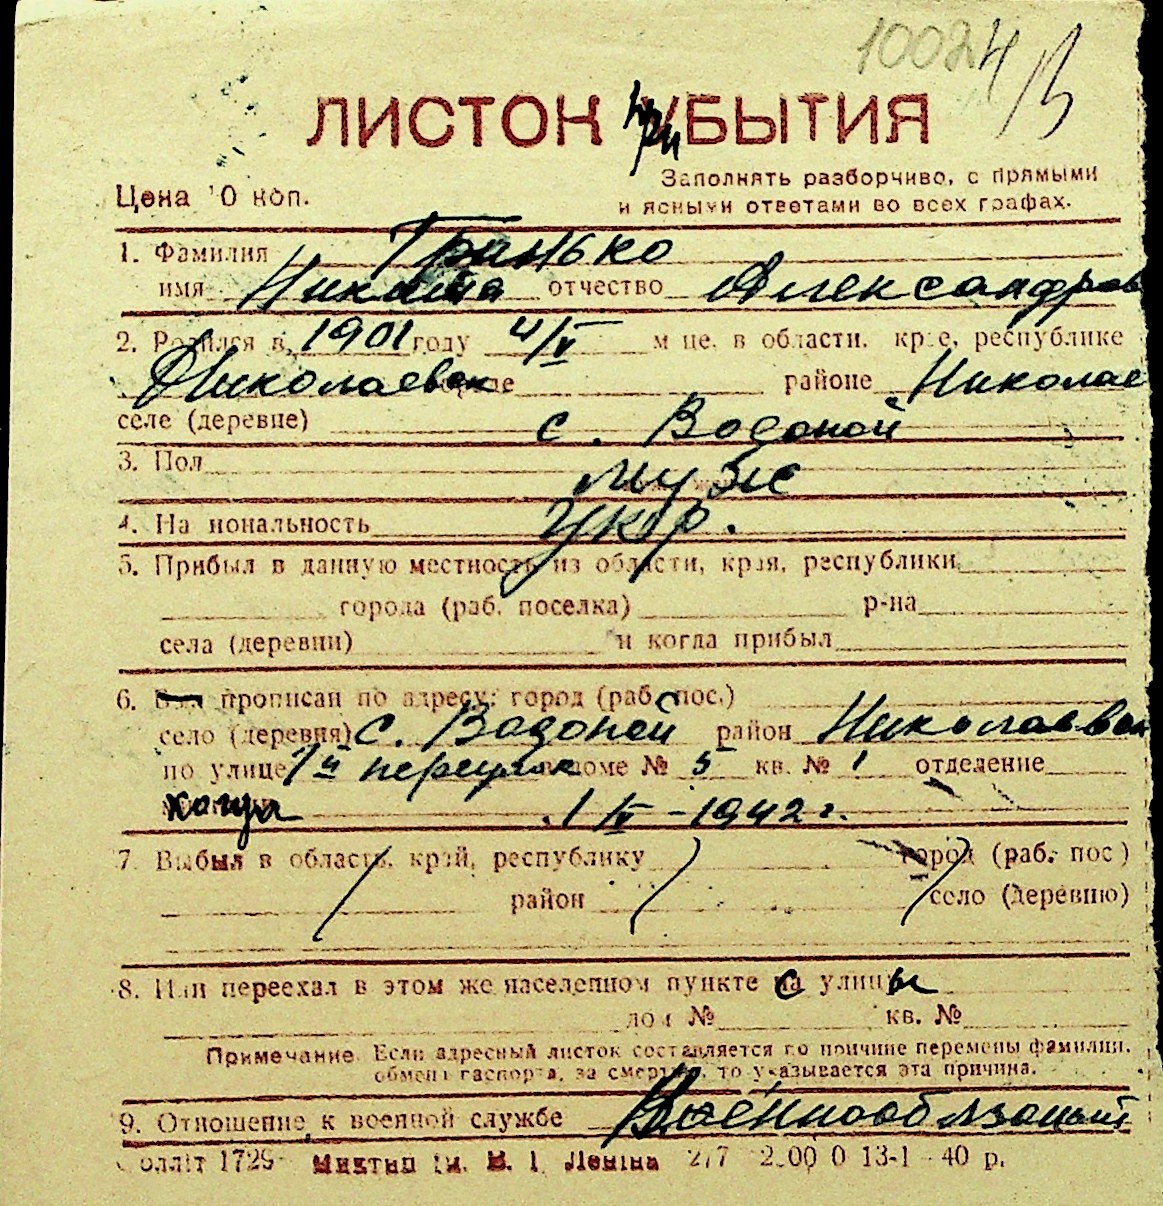 10024
ЛИСТОК прибЫТИЯ
Цена 10 коп. Заполнять разборчиво, с прямыми
и ясными ответами во всех графах.
1. Фамилия Гринько
имя Никита отчество Александров
2. Родился в 1901 году 4/V м-це, в области, крае, республике
Николаевск городе районе Николаев
селе (деревне) с. Водоной
3. Пол муж
4. Национальность укр.
5. Прибыл в данную местность из области, края, республики
города (раб. поселка) р-на
села (деревни) и когда прибыл
6. Был прописан по адресу: город (раб. пос.)
село (деревня) с. Водоной район Николаевск
по улице 7й переулок в доме № 5 кв. № 1 отделение
когда 1/V - 1942 г.
7. Выбыл в область, край, республику город (раб. пос.)
район село (деревню)
8. Или переехал в этом же населенном пункте с улицы
дом № кв. №
Примечание Если адресный листок составляется по причине перемены фамилии,
обмена паспорта, за смертью, то указывается эта причина.
9. Отношение к военной службе Военнообязаный
Облліт 1729 Миктип ім. В. І. Леніна 13-1-40 р.